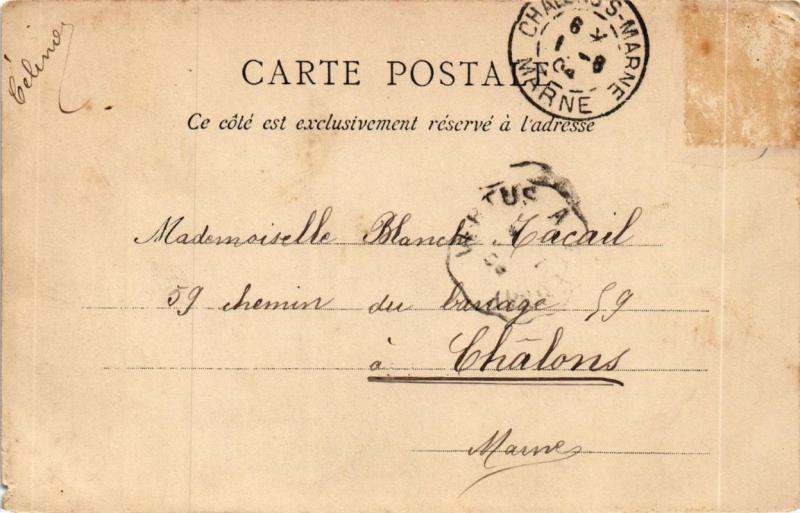 Céline
CHALONS-S-MARNE
6
1 -8
04
MARNE
CARTE POSTALE
Ce côté est exclusivement réservé à l'adresse
VERTUS A
Mademoiselle Blanche Tacail
59 chemin du barrage 59
à Châlons
Marne